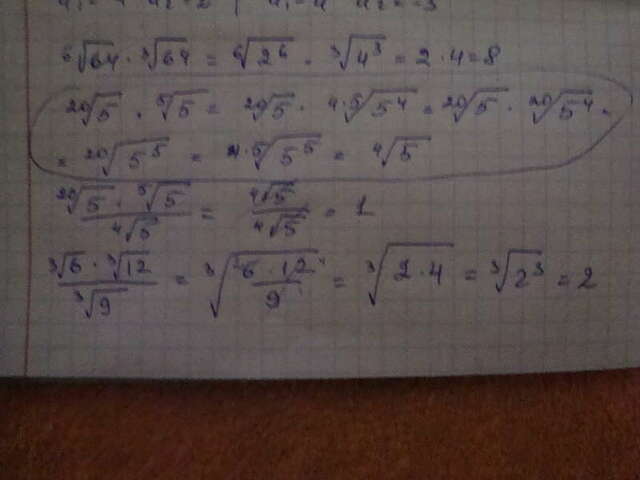 ⁶√64 · ³√64 = ⁶√2⁶ · ³√4³ = 2 · 4 = 8
²⁰√5 · ⁵√5 = ²⁰√5 · ⁴·⁵√5⁴ = ²⁰√5 · ²⁰√5⁴ =
= ²⁰√5⁵ = ⁴·⁵√5⁵ = ⁴√5
(²⁰√5 · ⁵√5)/(⁴√5) = (⁴√5)/(⁴√5) = 1
(³√6 · ³√12)/(³√9) = ³√((6 · 12)/9) = ³√(2 · 4) = ³√2³ = 2